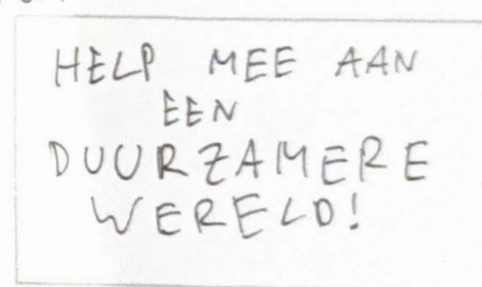 HELP MEE AAN
EEN
DUURZAMERE
WERELD!